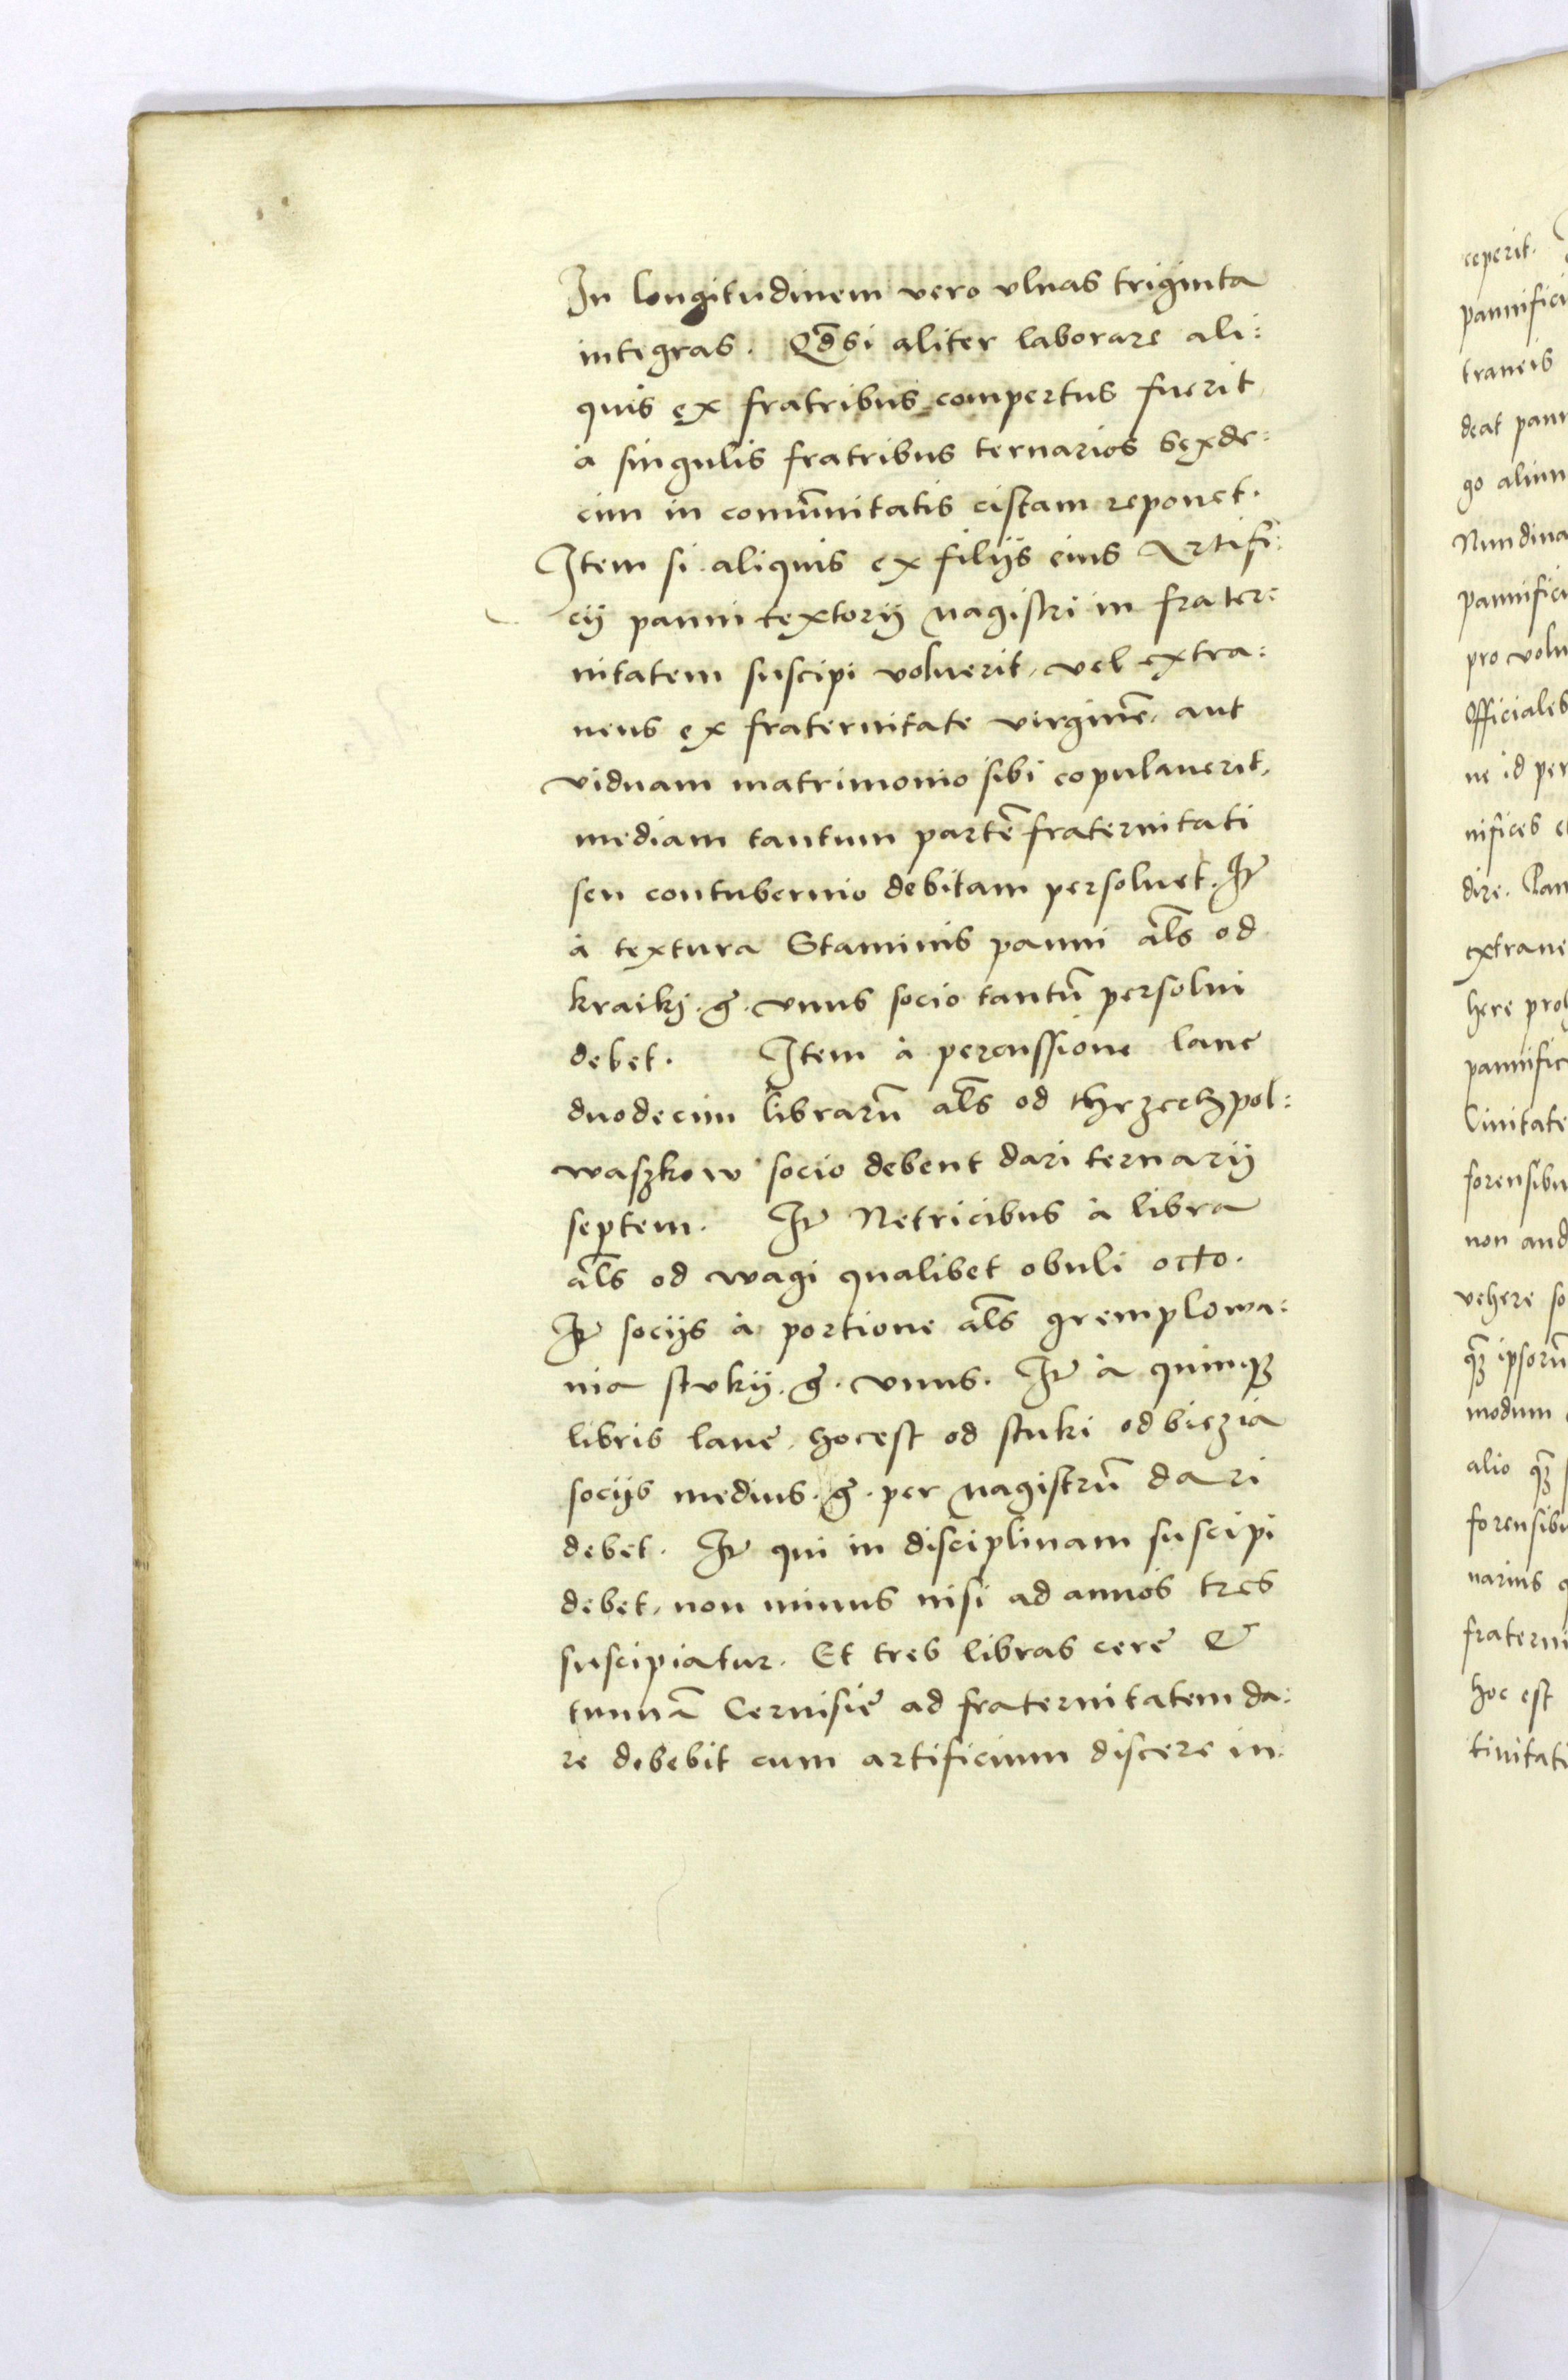 In longitudinem vero vlnas triginta
integras. Qd̄si aliter laborare ali:
quis ex fratribus compertus fuerit
à singulis fratribus ternarios sexde:
cim in comūnitatis cistam reponet.
Item si aliquis ex filijs eius Artifi:
cij panni textorij Magistri in frater:
nitatem suscipi voluerit, vel extra:
neus ex fraternitate virginē, aut
viduam matrimonio sibi copulauerit,
mediam tantum partē fraternitati
seu contubernio debitam persoluet. It̄
à textura Staminis panni als̄ od
kraiki. g̃. vnus socio tantū persolui
debet. Item à percussione lane
duodecim librarū als̄ od thrzechpol:
waszkow socio debent dari ternarij
septem. It̄ Netricibus à libra
als̄ od wagi qualibet obuli octo.
It̄ socijs à portione als̄ gremplowa:
nia stvkij. g̃. vnus. It̄ à quinqꝫ
libris lane, hocest od stuki odbiezia
socijs medius. g̃. per Magistrū dari
debet. It̄ qui in disciplinam suscipi
debet, non minus nisi ad annos tres
suscipiatur. Et tres libras cere &
tunnā Ceruisie ad fraternitatem da:
re debebit cum artificium discere in:
ceperit.
pannifici
traneis
deat pann
go alium
Nundina
pannifici
pro volu
Officiales
ne id per
nifices
dire.
extrane
here proh
pannific
Ciuitate
forensibu
non aud
vehere so
ipsorū
modum
alio
forensibu
narius
fraterni
hoc est